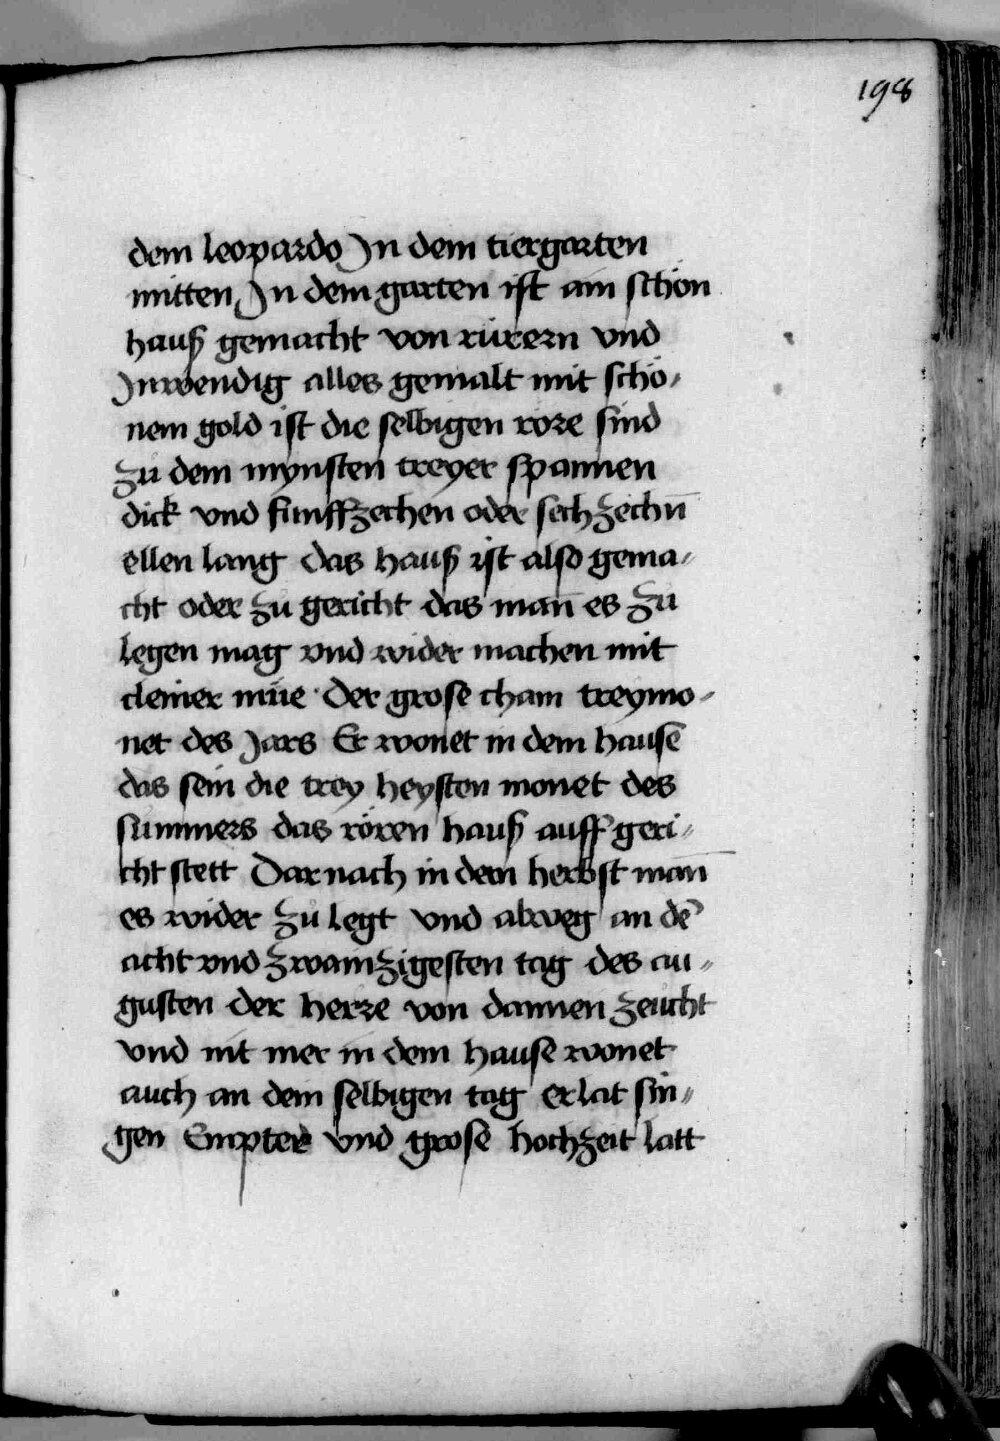 198
dem leopardo Jn dem tiergarten
mitten Jn dem garten ist ain schön
hauß gemacht von rürern vnd
Jnwendig alles gemalt mit schö„
nem gold ist die selbigen röre sind
zu dem mynsten treyer spannen
dick vnd funffzechen oder sechzechn̄
ellen lang das hauß ist also gema„
cht oder zu gericht das man̄ es zu
legen mag vnd wider machen mit
cleiner müe · der grose cham treymo„
net des Jars Er wonet in dem hause
das sein die trey heysten monet des
summers das rören hauß auff geri„
cht stett Darnach in dem herbst man̄
es wider zu legt vnd abweg an dē
acht vnd zwainzigesten tag des au„
gusten der herre von dannen zeucht
vnd nit mer in dem hause wonet
auch an dem selbigen tag er lat sin„
gen Empter vnd grose hochzeit latt